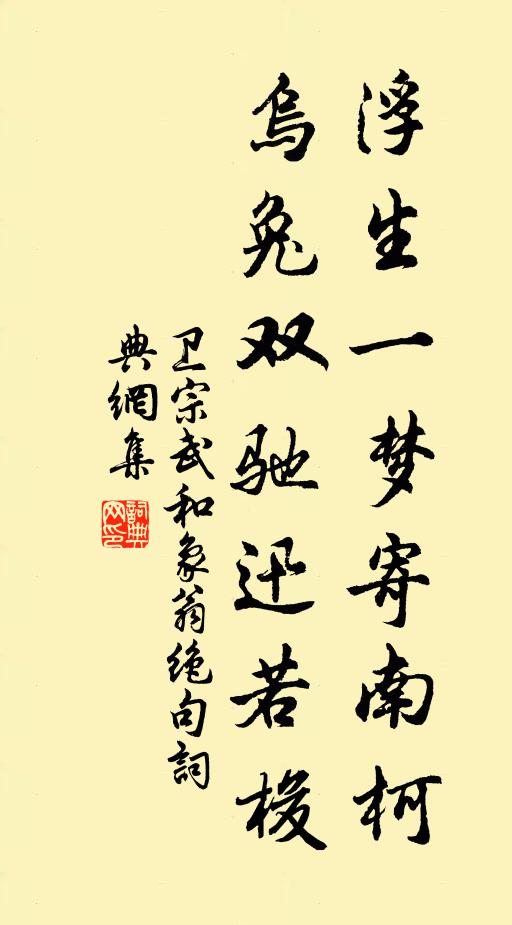 浮生一梦寄南柯
乌兔双驰迅若梭
卫宗武和象翁绝句詞
典網集
詞典网印